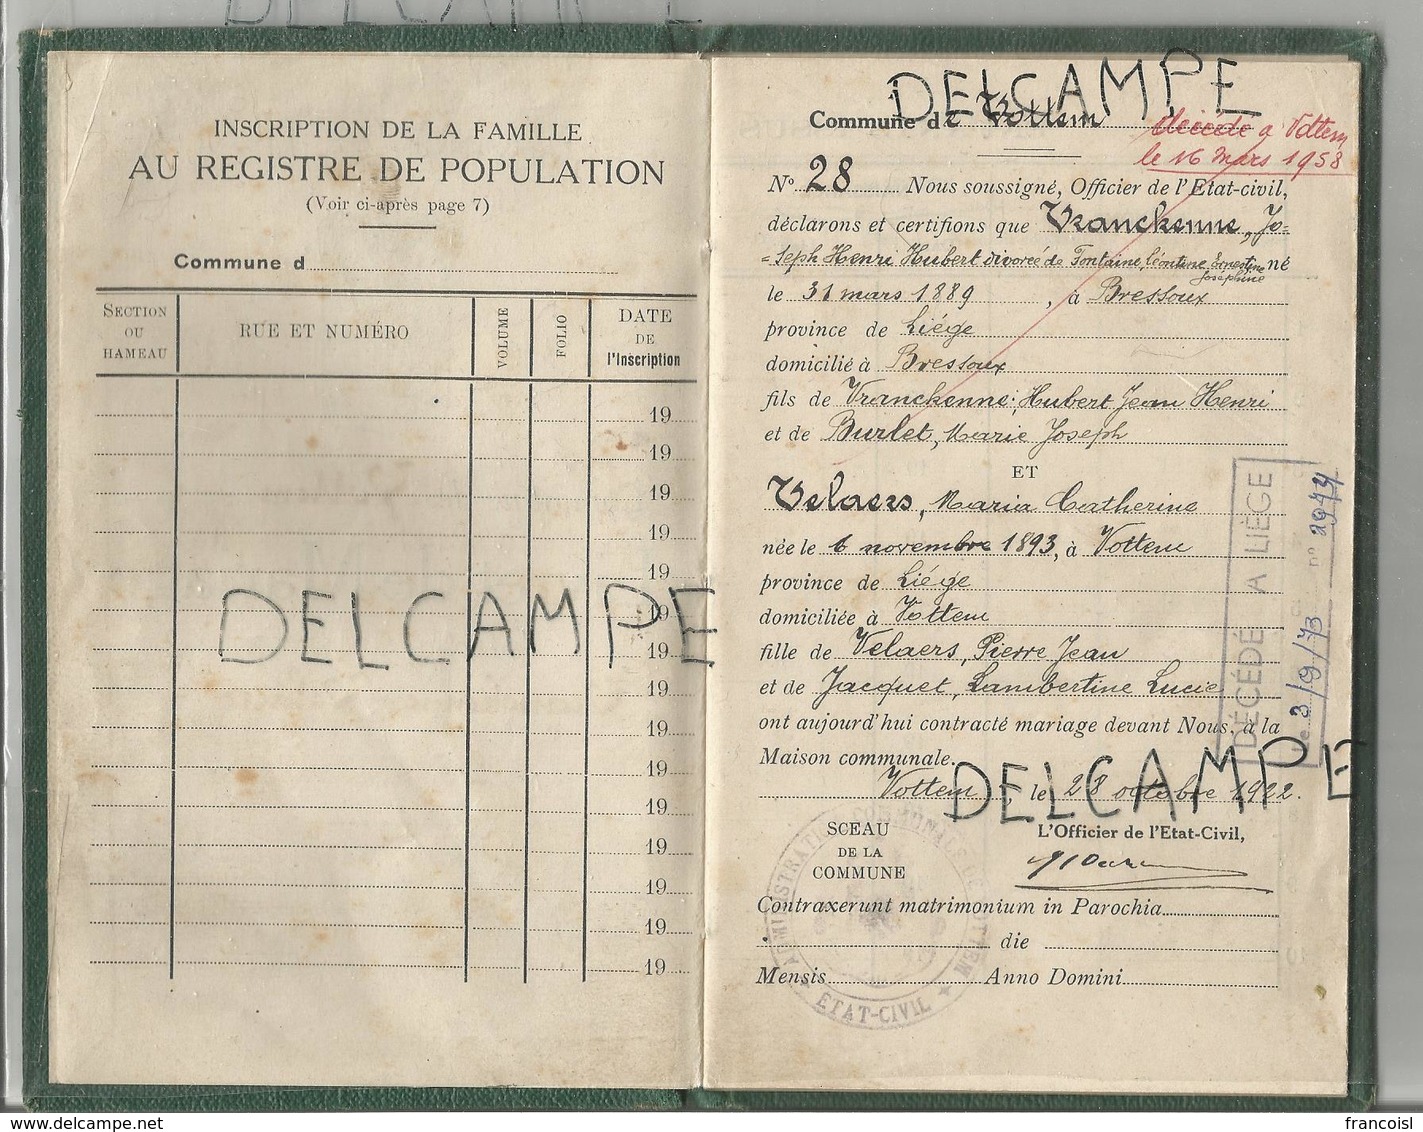 DELCAMPE
INSCRIPTION DE LA FAMILLE
AU REGISTRE DE POPULATION
(Voir ci-après page 7)
Commune d
SECTION OU HAMEAU
RUE ET NUMÉRO
VOLUME
FOLIO
DATE DE l'Inscription
19
19
19
19
19
19
19
19
19
19
19
19
19
19
19
DELCAMPE
DELCAMPE
Commune de Vottem
décédé à Vottem
le 16 mars 1958
N° 28 Nous soussigné, Officier de l'Etat-civil,
déclarons et certifions que Vranckenne, Jo-
=seph Henri Hubert divorcé de Fontaine, Léontine Ernestine né
Joséphine
le 31 mars 1889, à Bressoux
province de Liége
domicilié à Bressoux
fils de Vranckenne, Hubert Jean Henri
et de Burlet, Marie Joseph
ET
Velaers, Maria Catherine
née le 6 novembre 1893, à Vottem
province de Liége
domiciliée à Vottem
fille de Velaers, Pierre Jean
et de Jacquet, Lambertine Lucie
ont aujourd'hui contracté mariage devant Nous, à la
Maison communale.
Vottem, le 28 octobre 1922.
DELCAMPE
SCEAU
DE LA
COMMUNE
L'Officier de l'Etat-Civil,
ADMINISTRATION COMMUNALE DE VOTTEM
ETAT-CIVIL
Contraxerunt matrimonium in Parochia
die
Mensis Anno Domini
DÉCÉDÉ A LIÈGE
Le 3/9/73 n° 2944
www.delcampe.net
francoisl